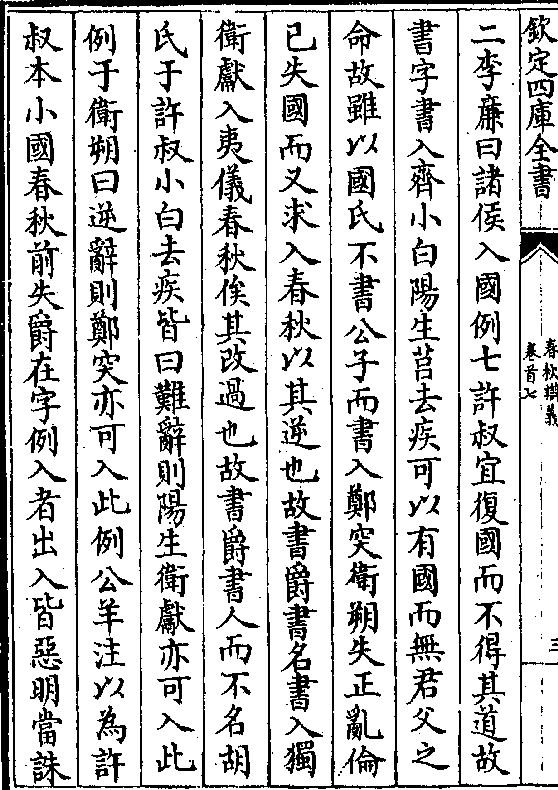 欽定四庫全書
春秋辑義
卷首七
三
二李廉曰諸侯入國例七許叔宜復國而不得其道故
書字書入齊小白陽生莒去疾可以有國而無君父之
命故雖以國氏不書公子而書入鄭突衛朔失正亂倫
已失國而又求入春秋以其逆也故書爵書名書入獨
衛獻入夷儀春秋俟其改過也故書爵書人而不名胡
氏于許叔小白去疾皆曰難辭則陽生衛獻亦可入此
例于衛朔曰逆辭則鄭突亦可入此例公羊注以為許
叔本小國春秋前失爵在字例入者出入皆惡明當誅